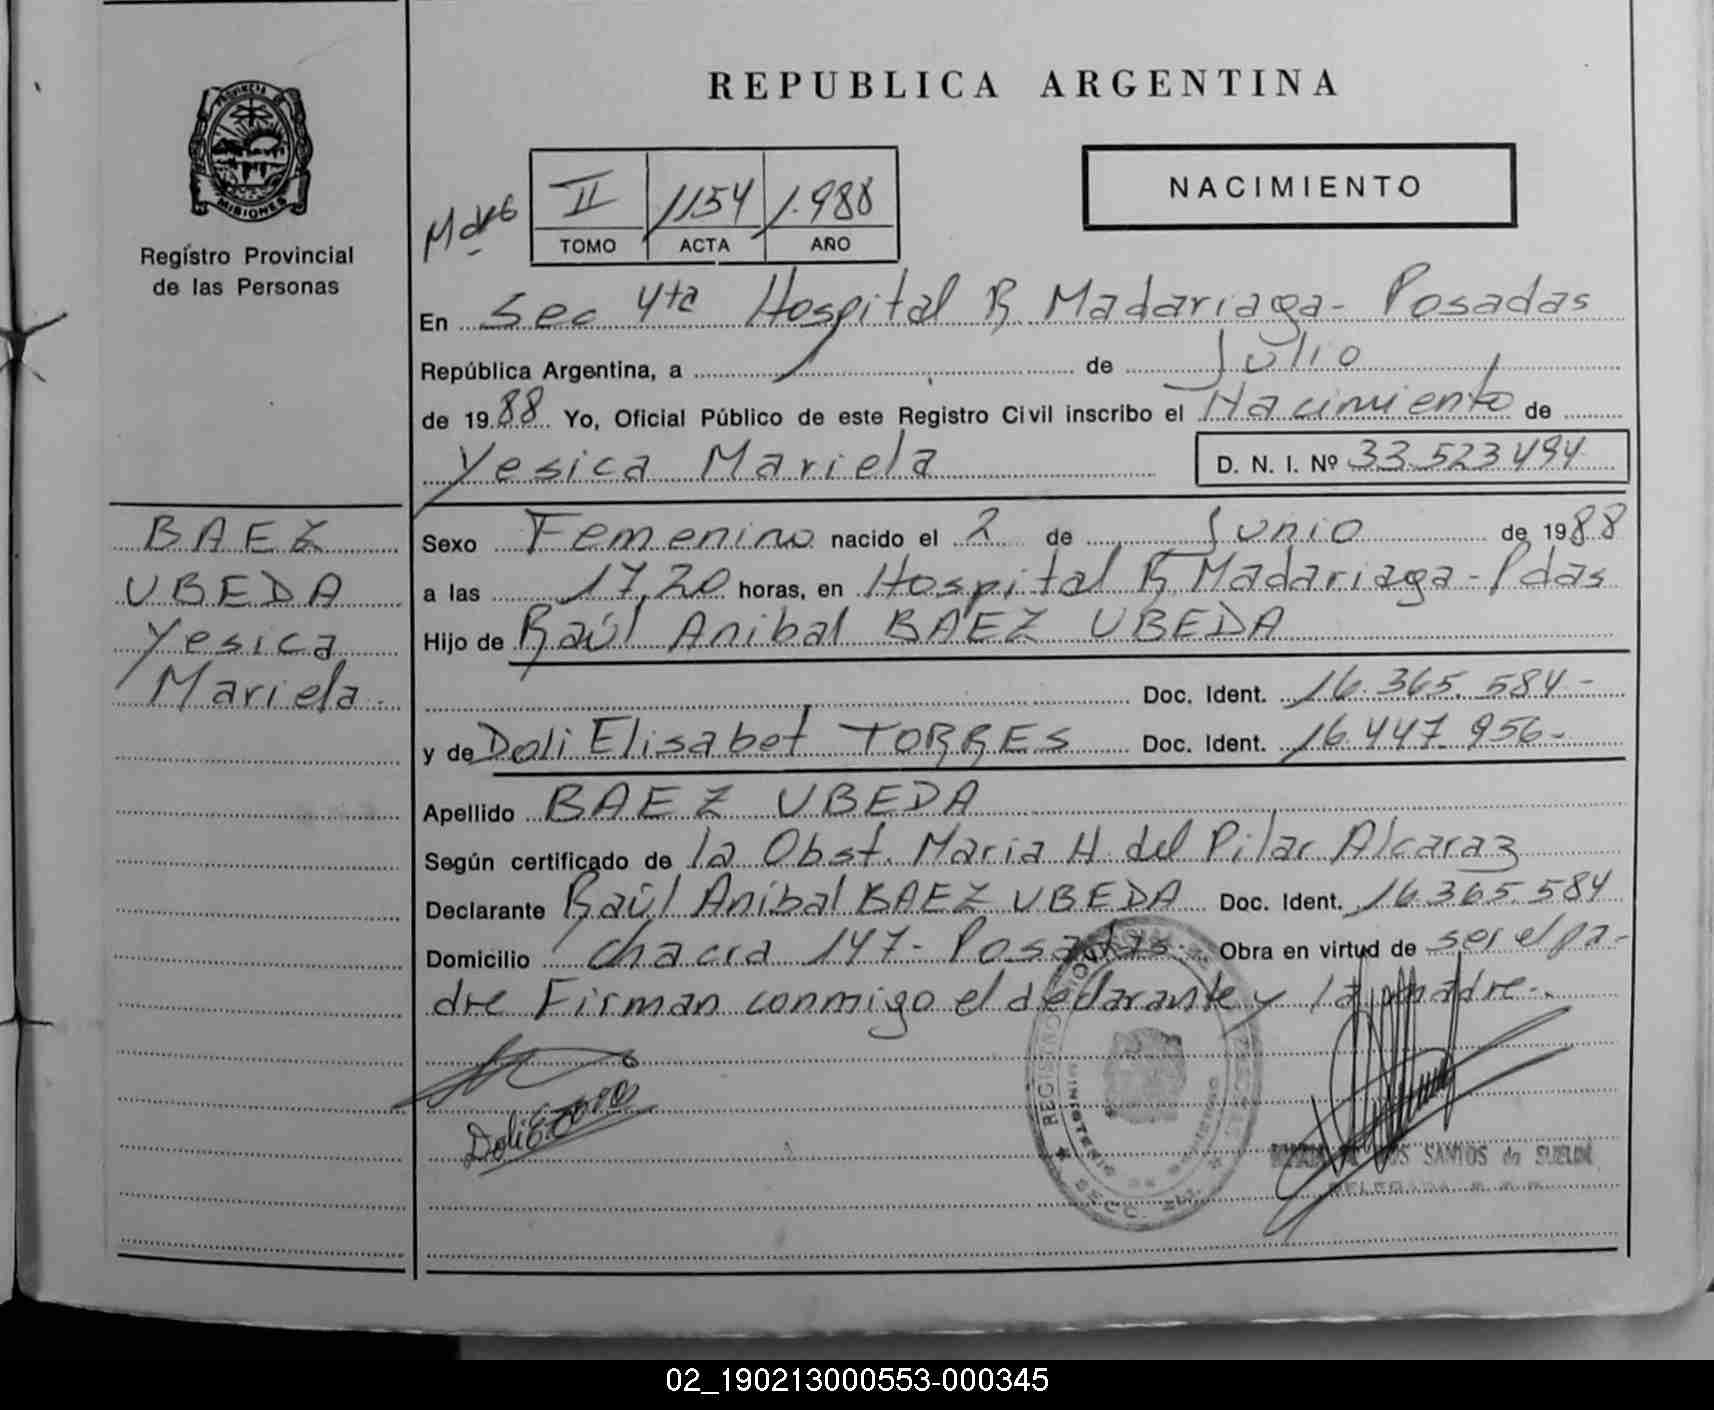 REPUBLICA ARGENTINA
PROVINCIA DE
MISIONES
Registro Provincial
de las Personas
NACIMIENTO
II 1154 1.988
TOMO ACTA AÑO
En Sec 4ta Hospital R Madariaga- Posadas
República Argentina, a 1 de Julio
de 1988 Yo, Oficial Público de este Registro Civil inscribo el Nacimiento de
Yesica Mariela D. N. I. Nº 33.523.494
BAEZ
UBEDA
Yesica
Mariela.
Sexo Femenino nacido el 2 de Junio de 1988
a las 17,20 horas, en Hospital R Madariaga-Pdas
Hijo de Raúl Anibal BAEZ UBEDA
Doc. Ident. 16.365.584-
y de Doli Elisabet TORRES Doc. Ident. 16.447.956-
Apellido BAEZ UBEDA
Según certificado de la Obst. Maria H. del Pilar Alcaraz
Declarante Raúl Anibal BAEZ UBEDA Doc. Ident. 16.365.584
Domicilio chacra 147- Posadas. Obra en virtud de ser el pa-
dre Firman conmigo el declarante y la madre-.
REGISTRO
MINISTERIO DE
SECC.
SANTOS de
02_190213000553-000345